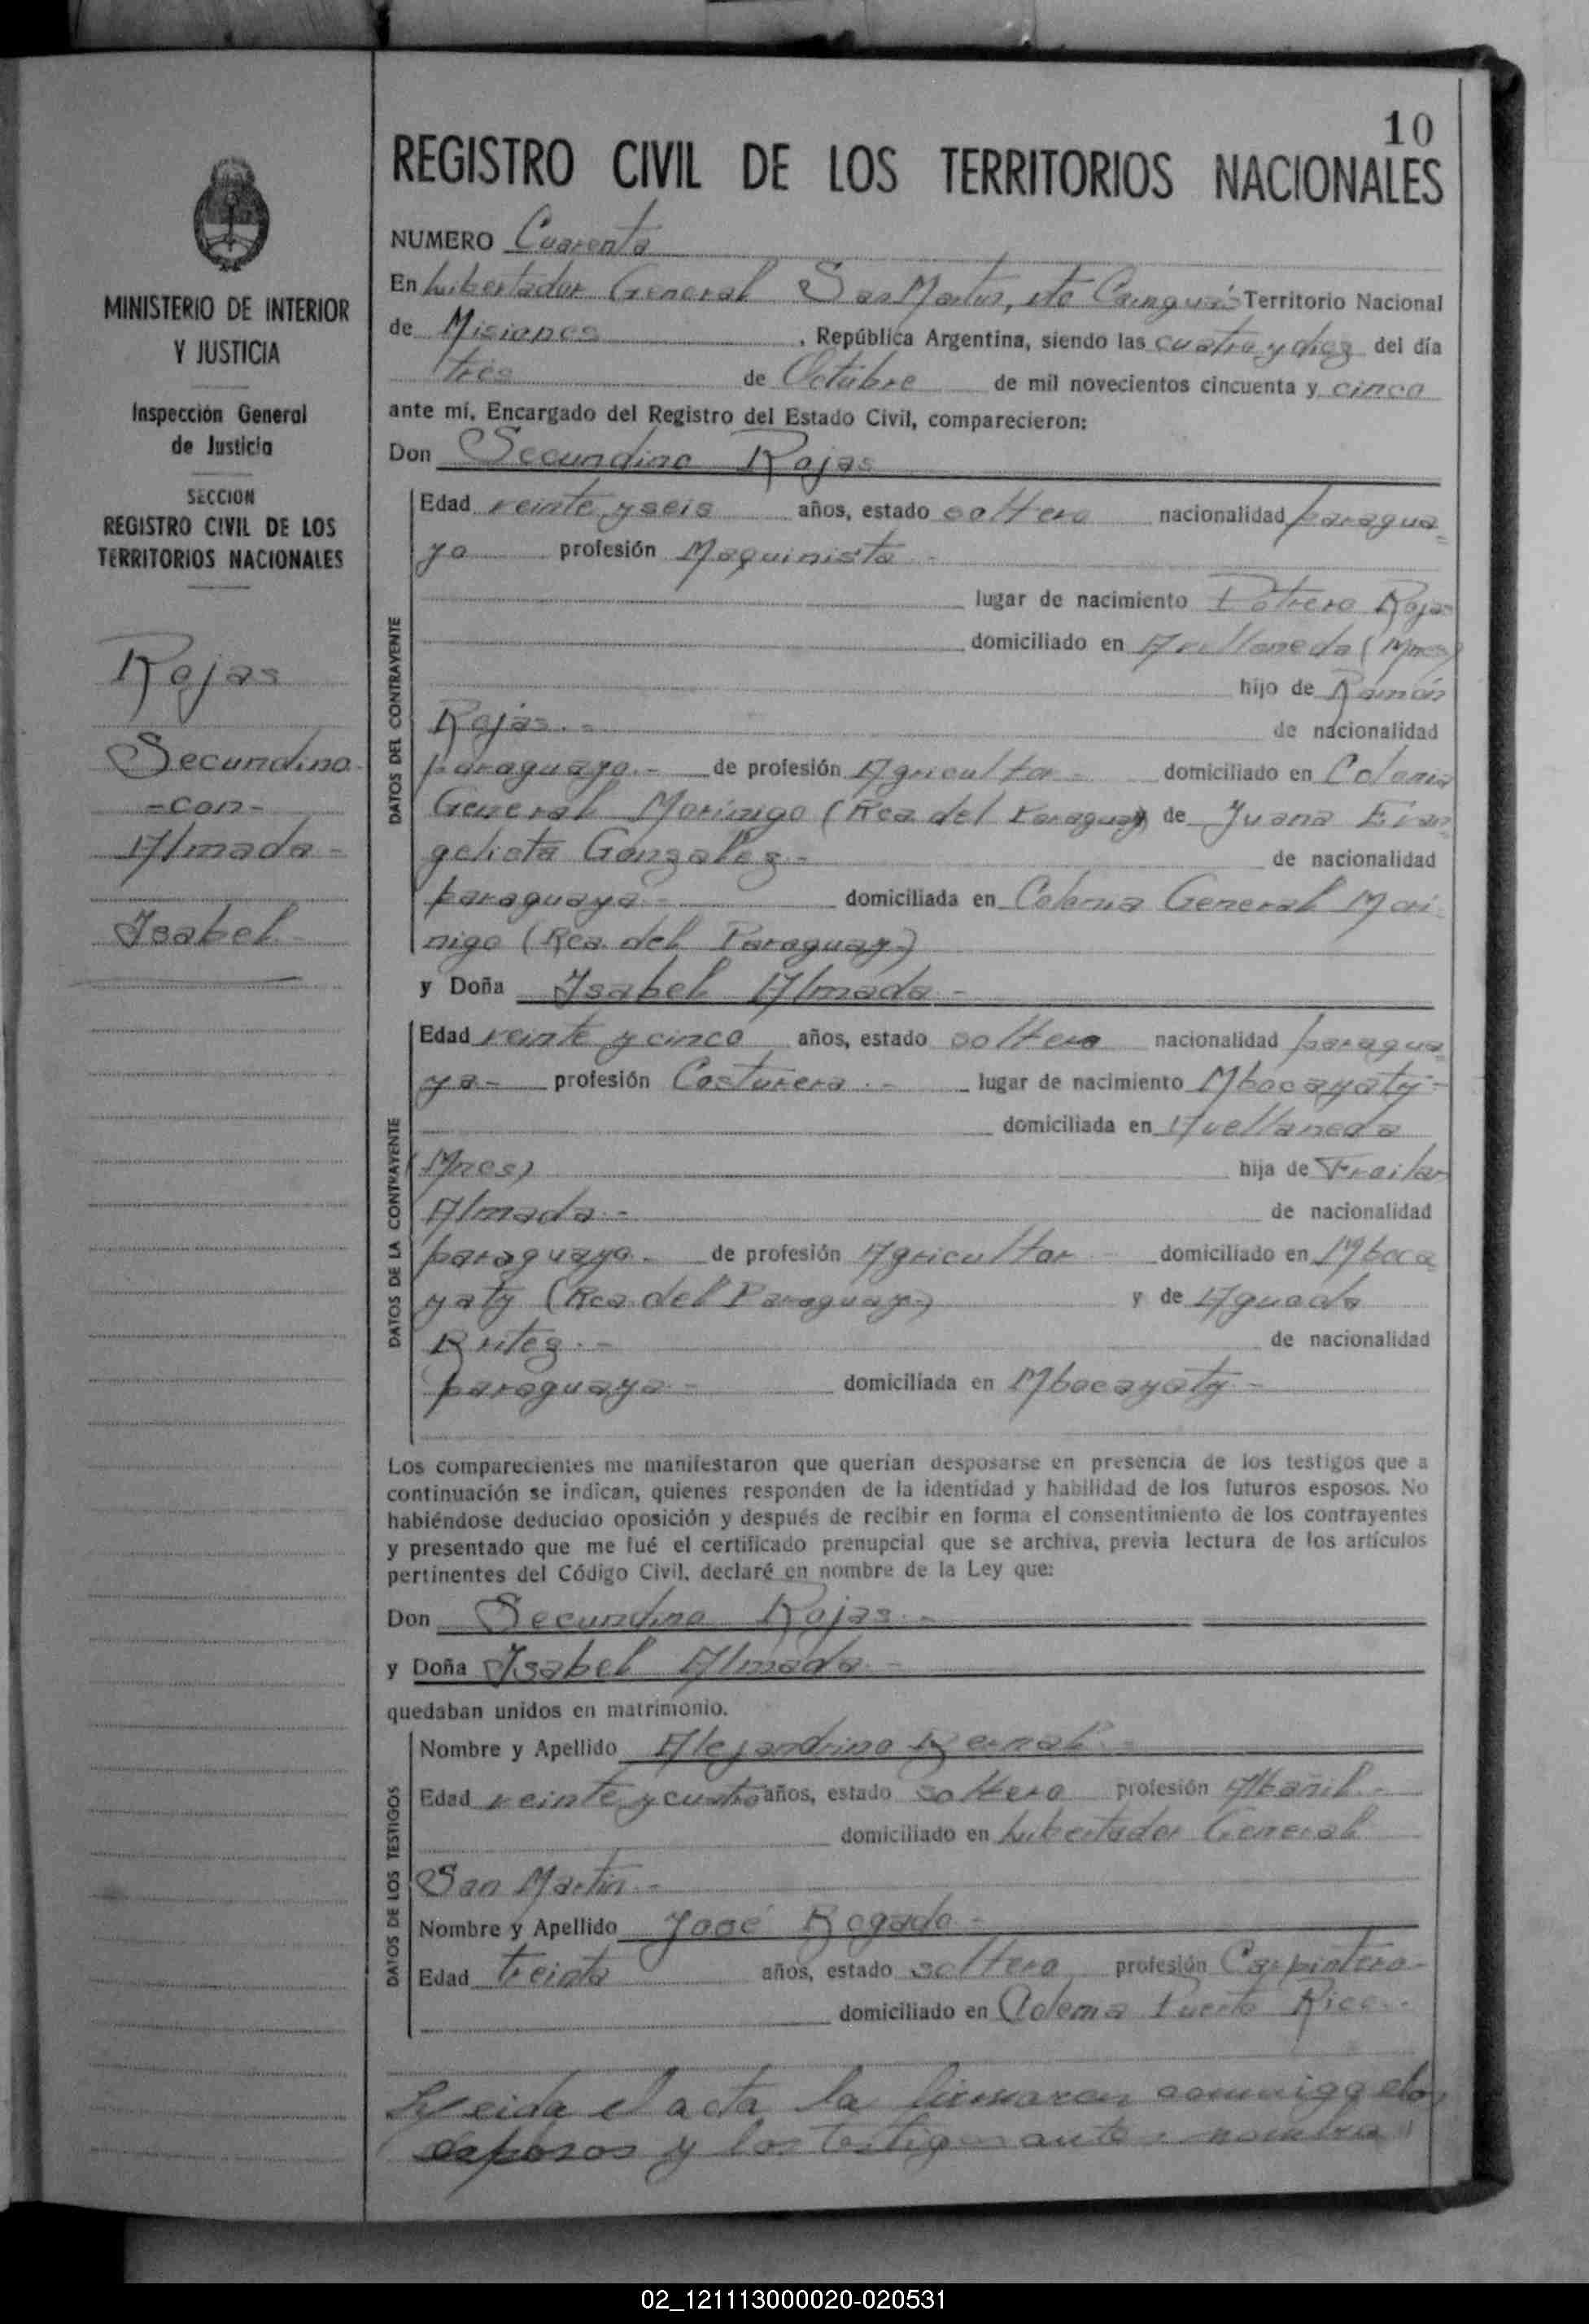 10
REGISTRO CIVIL DE LOS TERRITORIOS NACIONALES
MINISTERIO DE INTERIOR
Y JUSTICIA
Inspección General
de Justicia
SECCION
REGISTRO CIVIL DE LOS
TERRITORIOS NACIONALES
Rojas
Secundino
-con-
Almada-
Isabel
NUMERO Cuarenta
En Libertador General San Martin, dto Cainguás Territorio Nacional
de Misiones, República Argentina, siendo las cuatro y diez del día
tres de Octubre de mil novecientos cincuenta y cinco
ante mí, Encargado del Registro del Estado Civil, comparecieron:
Don Secundino Rojas
DATOS DEL CONTRAYENTE
Edad veinte y seis años, estado soltero nacionalidad paragua-
yo profesión Maquinista-
lugar de nacimiento Potrero Rojas
domiciliado en Avellaneda (Mnes)
hijo de Ramón
Rojas.- de nacionalidad
paraguayo.- de profesión Agricultor- domiciliado en Colonia
General Morinigo (Rca del Paraguay) de Juana Evan
gelista Gonzalez- de nacionalidad
paraguaya- domiciliada en Colonia General Mori-
nigo (Rca. del Paraguay)
y Doña Isabel Almada-
DATOS DE LA CONTRAYENTE
Edad veinte y cinco años, estado soltera nacionalidad paragua-
ya- profesión Costurera.- lugar de nacimiento Mbocayaty-
domiciliada en Avellaneda
(Mnes) hija de Froilan
Almada.- de nacionalidad
paraguayo.- de profesión Agricultor domiciliado en Mboca
yaty (Rca del Paraguay) y de Aguada
Britez.- de nacionalidad
paraguaya- domiciliada en Mbocayaty-
Los comparecientes me manifestaron que querían desposarse en presencia de los testigos que a
continuación se indican, quienes responden de la identidad y habilidad de los futuros esposos. No
habiéndose deducido oposición y después de recibir en forma el consentimiento de los contrayentes
y presentado que me fué el certificado prenupcial que se archiva, previa lectura de los artículos
pertinentes del Código Civil, declaré en nombre de la Ley que:
Don Secundino Rojas.-
y Doña Isabel Almada.-
quedaban unidos en matrimonio.
DATOS DE LOS TESTIGOS
Nombre y Apellido Alejandrino Bernal.-
Edad veinte y cuatro años, estado soltero profesión Albañil.-
domiciliado en Libertador General
San Martin.-
Nombre y Apellido José Bogado-
Edad treinta años, estado soltero profesión Carpintero-
domiciliado en Colonia Puerto Rico.-
Leida el acta la firmaron conmigo los
esposos y los testigos antes nombra
02_121113000020-020531